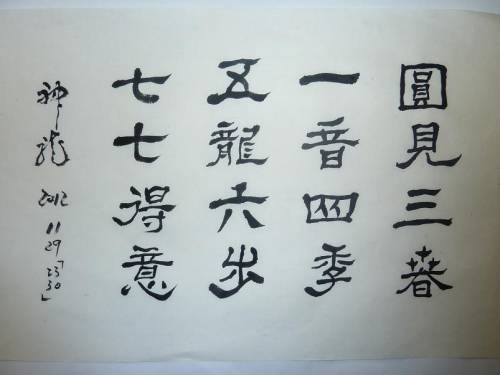 圓見三春
一音四季
五龍六出
七七得意
神龍 2012 11 29「23 30」